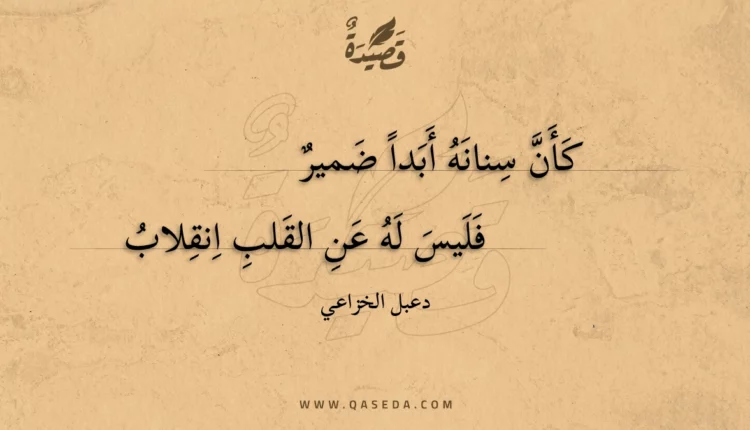 قَصِيدَةٌ
كَأَنَّ سِنانَهُ أَبَداً ضَميرٌ
فَلَيسَ لَهُ عَنِ القَلبِ اِنقِلابُ
دعبل الخزاعي
WWW.QASEDA.COM